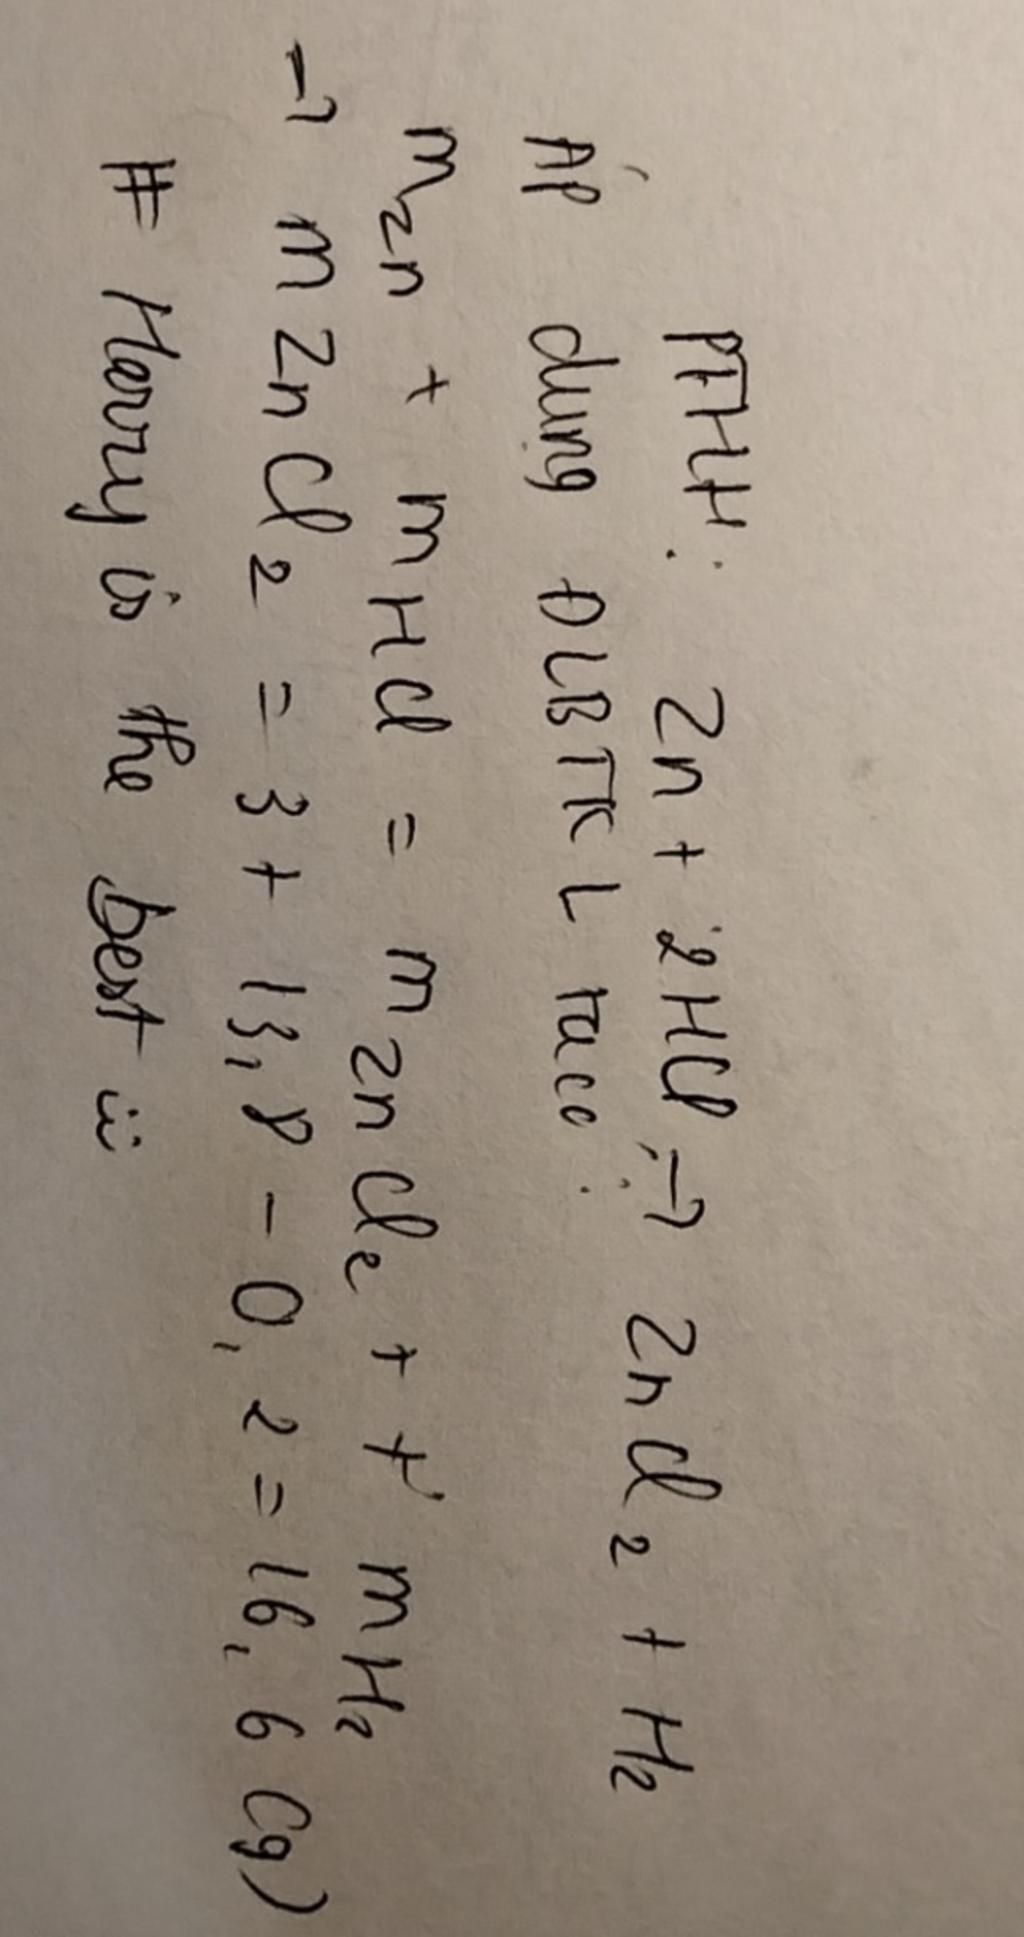 PTHH: Zn + 2HCl → ZnCl2 + H2
Áp dụng ĐLBTKL ta có:
mZn + mHCl = mZnCl2 + + mH2
→ mZnCl2 = 3 + 13,8 - 0,2 = 16,6 (g)
# Henry is the best ü